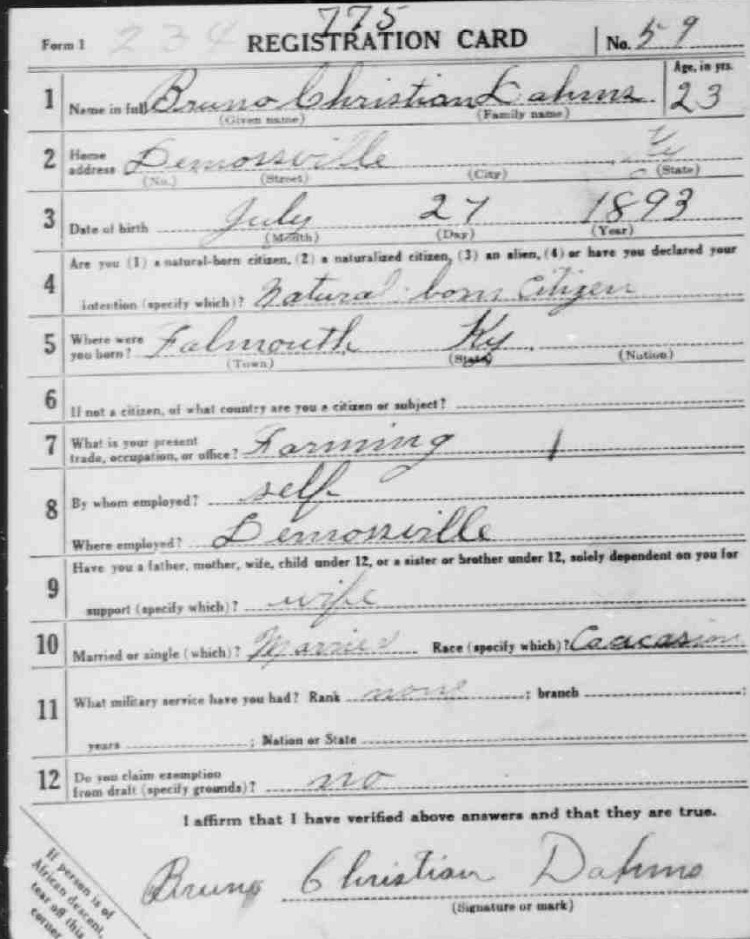 775
Form 1 234 REGISTRATION CARD No. 59
1 Name in full Bruno Christian Dahms Age, in yrs. 23
(Given name) (Family name)
2 Home address Demossville Ky
(No.) (Street) (City) (State)
3 Date of birth July 27 1893
(Month) (Day) (Year)
4 Are you (1) a natural-born citizen, (2) a naturalized citizen, (3) an alien, (4) or have you declared your
intention (specify which)? Natural born Citizen
5 Where were you born? Falmouth Ky.
(Town) (State) (Nation)
6 If not a citizen, of what country are you a citizen or subject?
7 What is your present trade, occupation, or office? Farming
8 By whom employed? self
Where employed? Demossville
9 Have you a father, mother, wife, child under 12, or a sister or brother under 12, solely dependent on you for
support (specify which)? wife
10 Married or single (which)? Married Race (specify which)? Caucasian
11 What military service have you had? Rank none ; branch ;
years ; Nation or State
12 Do you claim exemption from draft (specify grounds)? no
I affirm that I have verified above answers and that they are true.
Bruno Christian Dahms
(Signature or mark)
If person is of
African descent,
tear off this
corner